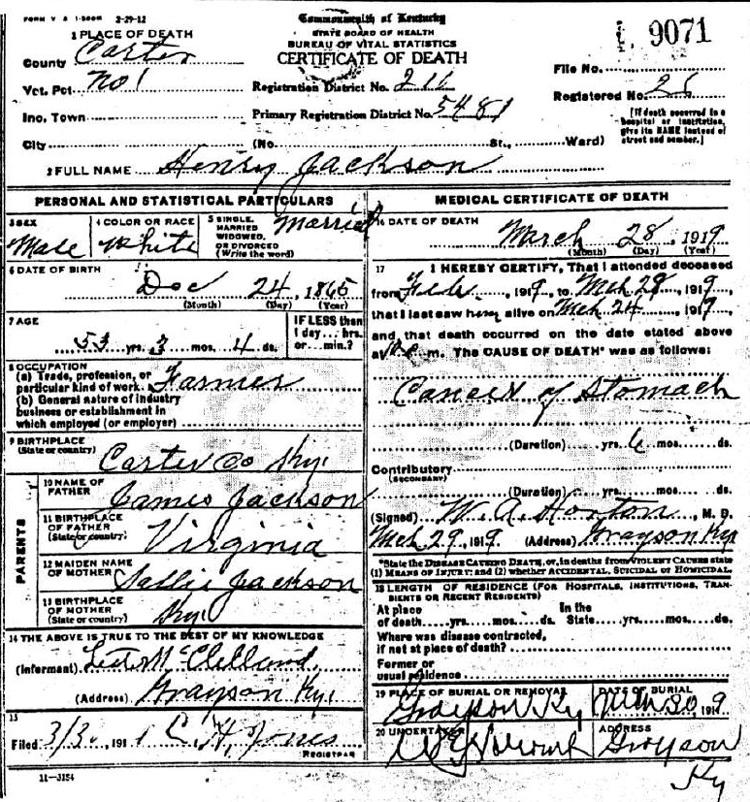 FORM V S 1-500M 2-29-12
Commonwealth of Kentucky
STATE BOARD OF HEALTH
BUREAU OF VITAL STATISTICS
CERTIFICATE OF DEATH
1 PLACE OF DEATH
County Carter
Vot. Pct. No 1
Inc. Town
City
Registration District No. 216
Primary Registration District No. 5481
(No. St., Ward)
9071
File No.
Registered No. 28
[If death occurred in a
hospital or institution,
give its NAME instead of
street and number.]
2 FULL NAME Henry Jackson
PERSONAL AND STATISTICAL PARTICULARS
3 SEX
Male
4 COLOR OR RACE
White
5 SINGLE,
MARRIED
WIDOWED,
OR DIVORCED
(Write the word)
Married
6 DATE OF BIRTH
Dec 24, 1865
(Month) (Day) (Year)
7 AGE
53 yrs. 3 mos. 4 ds.
IF LESS than
1 day, hrs.
or min.?
8 OCCUPATION
(a) Trade, profession, or
particular kind of work Farmer
(b) General nature of industry
business or establishment in
which employed (or employer)
9 BIRTHPLACE
(State or country)
Carter Co Ky.
PARENTS
10 NAME OF
FATHER
James Jackson
11 BIRTHPLACE
OF FATHER
(State or country)
Virginia
12 MAIDEN NAME
OF MOTHER
Sallie Jackson
13 BIRTHPLACE
OF MOTHER
(State or country)
Ky.
14 THE ABOVE IS TRUE TO THE BEST OF MY KNOWLEDGE
(Informant) McClelland
(Address) Grayson Ky.
15
Filed 3/3 , 191 Jones
REGISTRAR
11-3184
MEDICAL CERTIFICATE OF DEATH
16 DATE OF DEATH
March 28, 1919
(Month) (Day) (Year)
17 I HEREBY CERTIFY, That I attended deceased
from Feb. , 1919, to Mch 28, 1919,
that I last saw him alive on Mch 24, 1919,
and that death occurred on the date stated above
at m. The CAUSE OF DEATH* was as follows:
Cancer of Stomach
(Duration) yrs. 6 mos. ds.
Contributory
(SECONDARY)
(Duration) yrs. mos. ds.
(Signed) W. A. Horton, M. D.
Mch 29, 1919 (Address) Grayson Ky
*State the DISEASE CAUSING DEATH, or, in deaths from VIOLENT CAUSES state
(1) MEANS OF INJURY; and (2) whether ACCIDENTAL, SUICIDAL or HOMICIDAL.
18 LENGTH OF RESIDENCE (FOR HOSPITALS, INSTITUTIONS, TRAN-
SIENTS OR RECENT RESIDENTS)
At place In the
of death yrs. mos. ds. State yrs. mos. ds.
Where was disease contracted,
if not at place of death?
Former or
usual residence
19 PLACE OF BURIAL OR REMOVAL
Grayson Ky
DATE OF BURIAL
Mch 30, 1919
20 UNDERTAKER
ADDRESS
Grayson
Ky